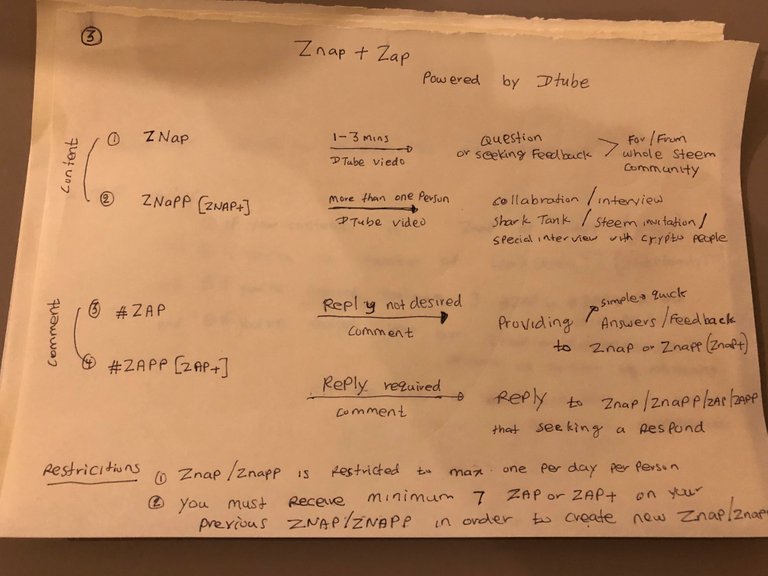 ③
Znap + Zap
Powered by Dtube
Content
① ZNap
1-3 mins
DTube viedo
Question
or seeking Feedback
For/From
whole Steem
Community
② ZNapp [ZNAP+]
more than one Person
DTube video
collabration / interview
Shark Tank / Steem invitation /
special interview with crypto people
Comment
③ #ZAP
Reply not desired
comment
simple & quick
Providing Answers/Feedback
to Znap or Znapp (Znap+)
④ #ZAPP [ZAP+]
Reply required
comment
Reply to Znap/Znapp/ZAP/ZAPP
that seeking a Respond
Restricitions ① Znap/Znapp is Restricted to max one per day per Person
② You must Receive minimum 7 ZAP or ZAP+ on your
previous ZNAP/ZNAPP in order to create new Znap/Znapp